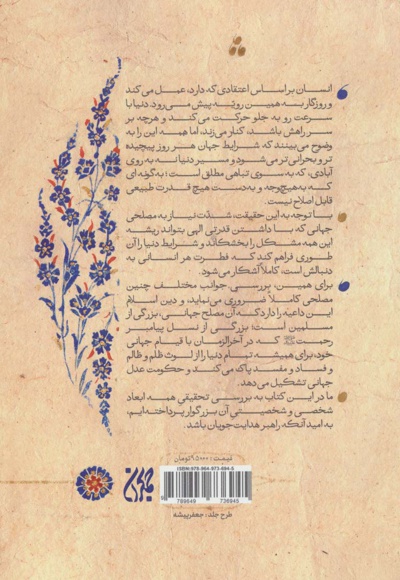 انسان بر اساس اعتقادی که دارد، عمل می‌کند
و روزگار به همین رویّه پیش می‌رود. دنیا با
سرعت رو به جلو حرکت می‌کند و هرچه بر
سر راهش باشد، کنار می‌زند، اما همه این را به
وضوح می‌بینند که شرایط جهان هر روز پیچیده
تر و بحرانی تر می‌شود و مسیر دنیا نه به روی
آبادی، که به سوی تباهی مطلق است؛ به گونه‌ای
که به هیچ‌وجه و به‌دست هیچ قدرت طبیعی
قابل اصلاح نیست.
با توجه به این حقیقت، شدّت نیاز به مصلحی
جهانی که با داشتن قدرتی الهی بتواند ریشه
این همه مشکل را بخشکاند و شرایط دنیا را آن
طوری فراهم کند که فطرت هر انسانی به
دنبالش است، کاملاً آشکار می‌شود.
برای همین، بررسی جوانب مختلف چنین
مصلحی کاملاً ضروری می‌نماید، و دین اسلام
این داعیه را دارد که آن مصلح جهانی، بزرگی از
مسلمین است؛ بزرگی از نسل پیامبر
رحمت ﷺ که در آخرالزمان با قیام جهانی
خود، برای همیشه تمام دنیا را از لوث ظلم و ظالم
و فساد و مفسد پاک می‌کند و حکومت عدل
جهانی تشکیل می‌دهد.
ما در این کتاب به بررسی تحقیقی همه ابعاد
شخصی و شخصیتی آن بزرگوار پرداخته‌ایم،
به امید آنکه راهبر هدایت‌جویان باشد.
قیمت: ۹۵۰۰۰ تومان
ISBN: 978-964-973-894-5
9 789649 738945
طرح جلد: جعفرپیشه